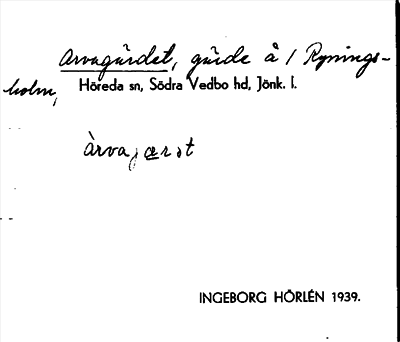 Arvagärdet, gärde å 1 Rynings-
holm, Höreda sn, Södra Vedbo hd, Jönk. l.
àrvajærət
INGEBORG HÖRLÉN 1939.